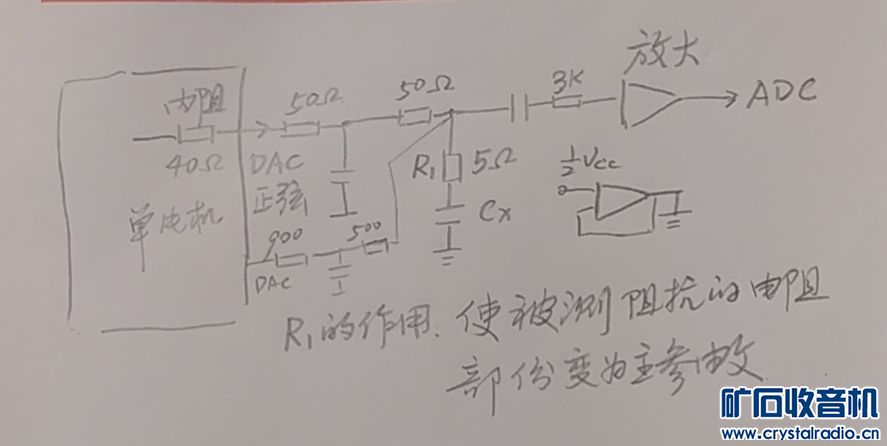 放大
内阻
50Ω
50Ω
3K
ADC
40Ω
DAC
正弦
R₁
5Ω
½Vcc
单电机
900
500
Cx
DAC
R₁的作用、使被测阻抗的电阻
部份变为主参故
矿石收音机
www.crystalradio.cn